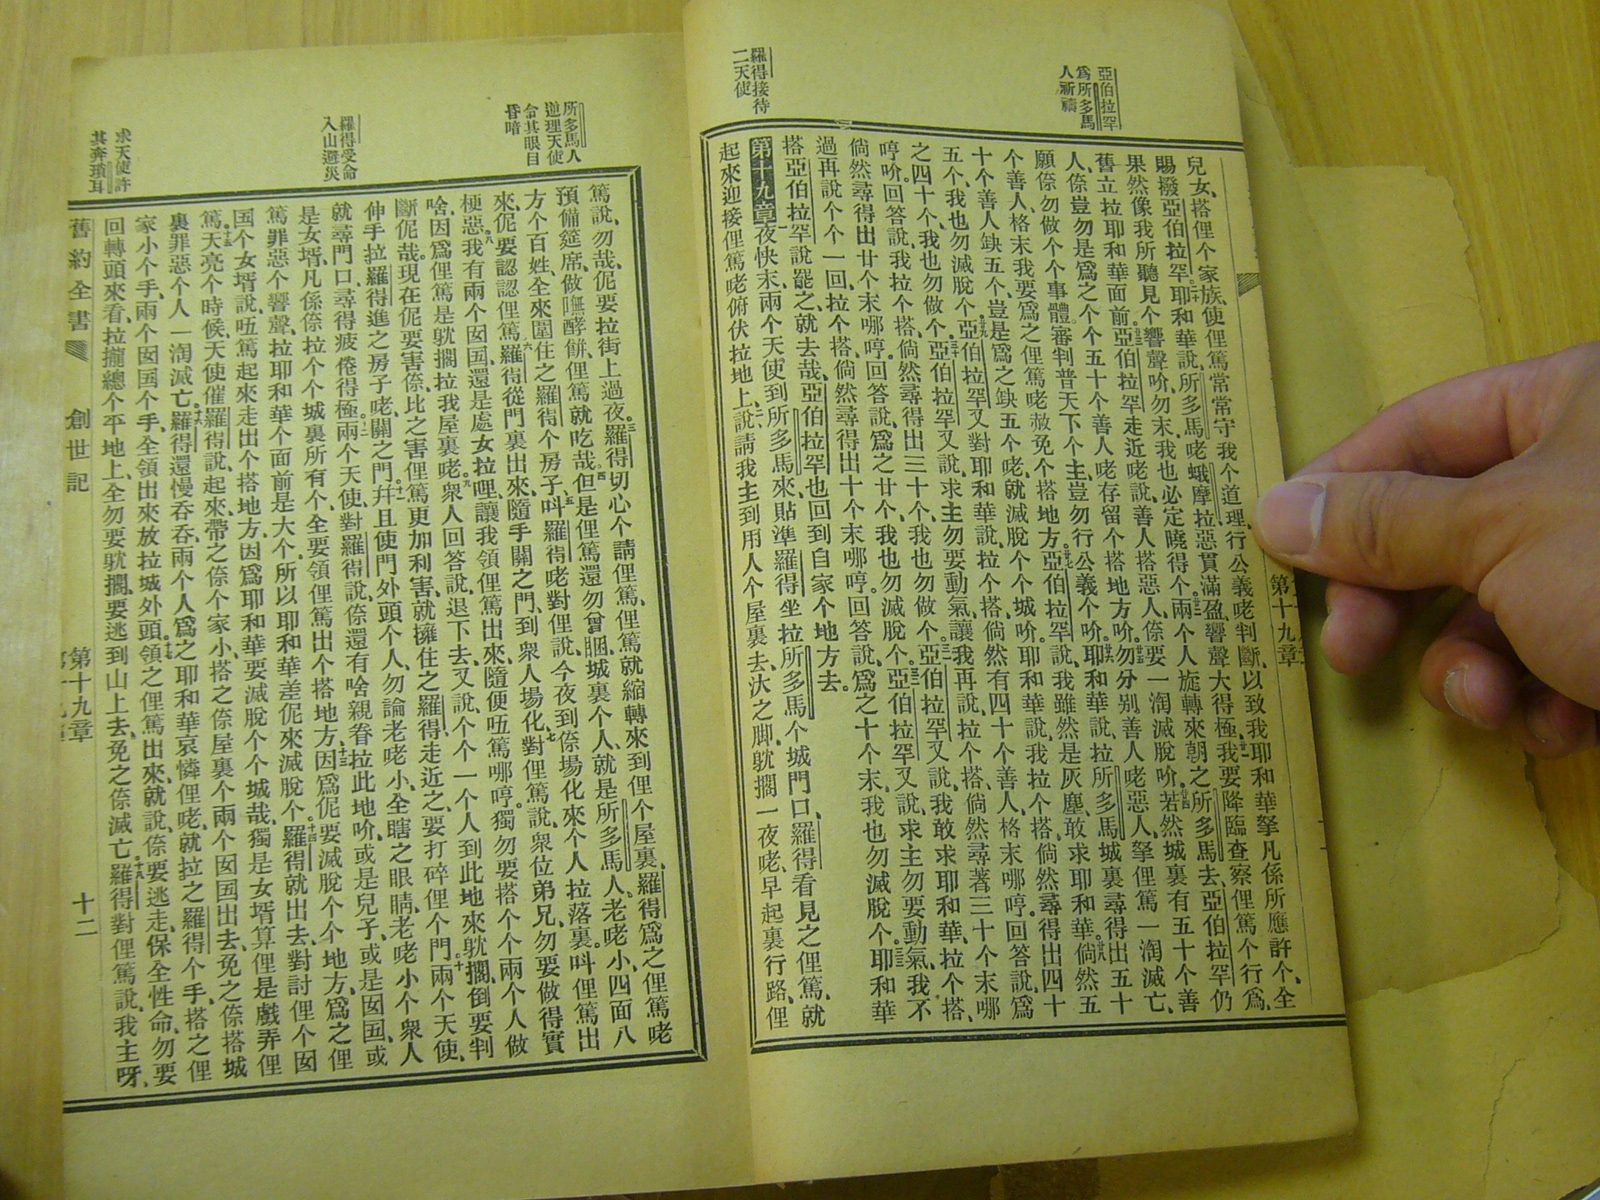 亞伯拉罕
爲所多馬
人祈禱
羅得接待
二天使
兒女、搭俚个家族、使俚篤常常守我个道理、行公義咾判斷、以致我耶和華拏凡係所應許个、全
賜撥亞伯拉罕、耶和華說、所多馬咾蛾摩拉惡貫滿盈、響聲大得極、我要降臨查察俚篤个行爲、
果然像我所聽見个響聲吤、勿末我也必定曉得个、兩个人旋轉來朝之所多馬去、亞伯拉罕仍
舊立拉耶和華面前、亞伯拉罕走近咾說、善人搭惡人、倷要一淘滅脫吤、若然城裏有五十个善
人、倷豈勿是爲之个个五十个善人咾存留个搭地方吤、勿分別善人咾惡人、拏俚篤一淘滅亡、
願倷勿做个个事體、審判普天下个主、豈勿行公義个吤、耶和華說、拉所多馬城裏尋得出五十
个善人、格末我要爲之俚篤咾赦免个搭地方、亞伯拉罕說、我雖然是灰塵、敢求耶和華、倘然五
十个善人缺五个、豈是爲之缺五个咾、就滅脫个个城吤、耶和華說、我拉个搭、倘然尋得出四十
五个、我也勿滅脫个、亞伯拉罕又對耶和華說、拉个搭、倘然有四十个善人、格末哪哼、回答說、爲
之四十个、我也勿做个、亞伯拉罕又說、求主勿要動氣、讓我再說、拉个搭、倘然尋著三十个末哪
哼吤、回答說、我拉个搭、倘然尋得出三十个、我也勿做个、亞伯拉罕又說、我敢求耶和華、拉个搭、
倘然尋得出廿个末哪哼、回答說、爲之廿个、我也勿滅脫个、亞伯拉罕又說、求主勿要動氣、我不
過再說个个一回、拉个搭、倘然尋得出十个末哪哼、回答說、爲之十个末、我也勿滅脫个、耶和華
搭亞伯拉罕說罷之、就去哉、亞伯拉罕也回到自家个地方去。
第十九章 夜快末、兩个天使到所多馬來、貼準羅得坐拉所多馬个城門口、羅得看見之俚篤、就
起來迎接俚篤咾俯伏拉地上、說、請我主到用人个屋裏去、汏之脚、躭擱一夜咾、早起裏行路、俚
第十九章
所多馬人
逆理天使
令其眼目
昏暗
羅得受命
入山避災
求天使許
其奔瑣耳
篤說、勿哉、伲要拉街上過夜、羅得切心个請俚篤、俚篤就縮轉來到俚个屋裏、羅得爲之俚篤咾
預備筵席、做無酵餅、俚篤就吃哉、但是俚篤還勿曾睏、城裏个人、就是所多馬人、老咾小、四面八
方个百姓、全來圍住之羅得个房子、呌羅得咾對俚說、今夜到倷場化來个人拉落裏、呌俚篤出
來、伲要認認俚篤、羅得從門裏出來、隨手關之門、到衆人場化、對俚篤說、衆位弟兄、勿要做得實
梗惡、我有兩个囡囝、還是處女拉哩、讓我領俚篤出來、隨便㑚篤哪哼、獨勿要搭个个兩个人做
啥、因爲俚篤是躭擱拉我屋裏咾、衆人回答說、退下去、又說、个个一个人到此地來躭擱、倒要判
斷伲哉、現在伲要害倷、比之害俚篤更加利害、就擁住之羅得、走近之要打碎俚个門、兩个天使、
伸手拉羅得進之房子咾、關之門、幷且使門外頭个人、勿論老咾小、全瞎之眼睛、老咾小个衆人
就尋門口、尋得疲倦得極、兩个天使對羅得說、倷還有啥親眷拉此地吤、或是兒子、或是囡囝、或
是女壻、凡係倷拉个个城裏所有个、全要領俚篤出个搭地方、因爲伲要滅脫个个地方、爲之俚
篤罪惡个響聲、拉耶和華个面前是大个、所以耶和華差伲來滅脫个、羅得就出去、對討俚个囡
囝个女壻說、㑚篤起來、走出个搭地方、因爲耶和華要滅脫个个城哉、獨是女壻算俚是戲弄俚
篤、天亮个時候、天使催羅得說、起來、帶之倷个家小、搭之倷屋裏个兩个囡囝出去、免之倷搭城
裏罪惡个人一淘滅亡、羅得還慢吞吞、兩个人爲之耶和華哀憐俚咾、就拉之羅得个手、搭之俚
家小个手、兩个囡囝个手、全領出來放拉城外頭、領之俚篤出來、就說、倷要逃走、保全性命、勿要
回轉頭來看、拉攏總个平地上、全勿要躭擱、要逃到山上去、免之倷滅亡、羅得對俚篤說、我主呀、
舊約全書 創世記 第十九章 十二